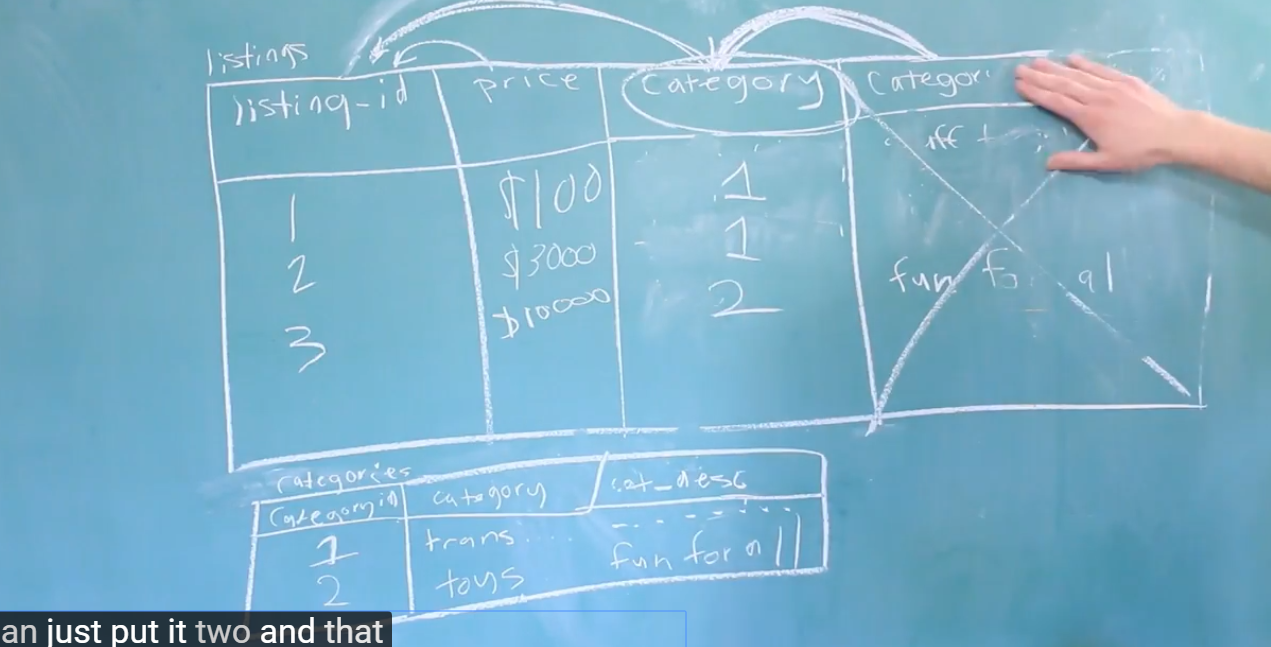 listings
listing-id price Category Categor
1 $100 1
2 $3000 1
3 $10000 2
fun fo al
categories
Categoryid category cat_desc
1 trans....
2 toys fun for all
an just put it two and that